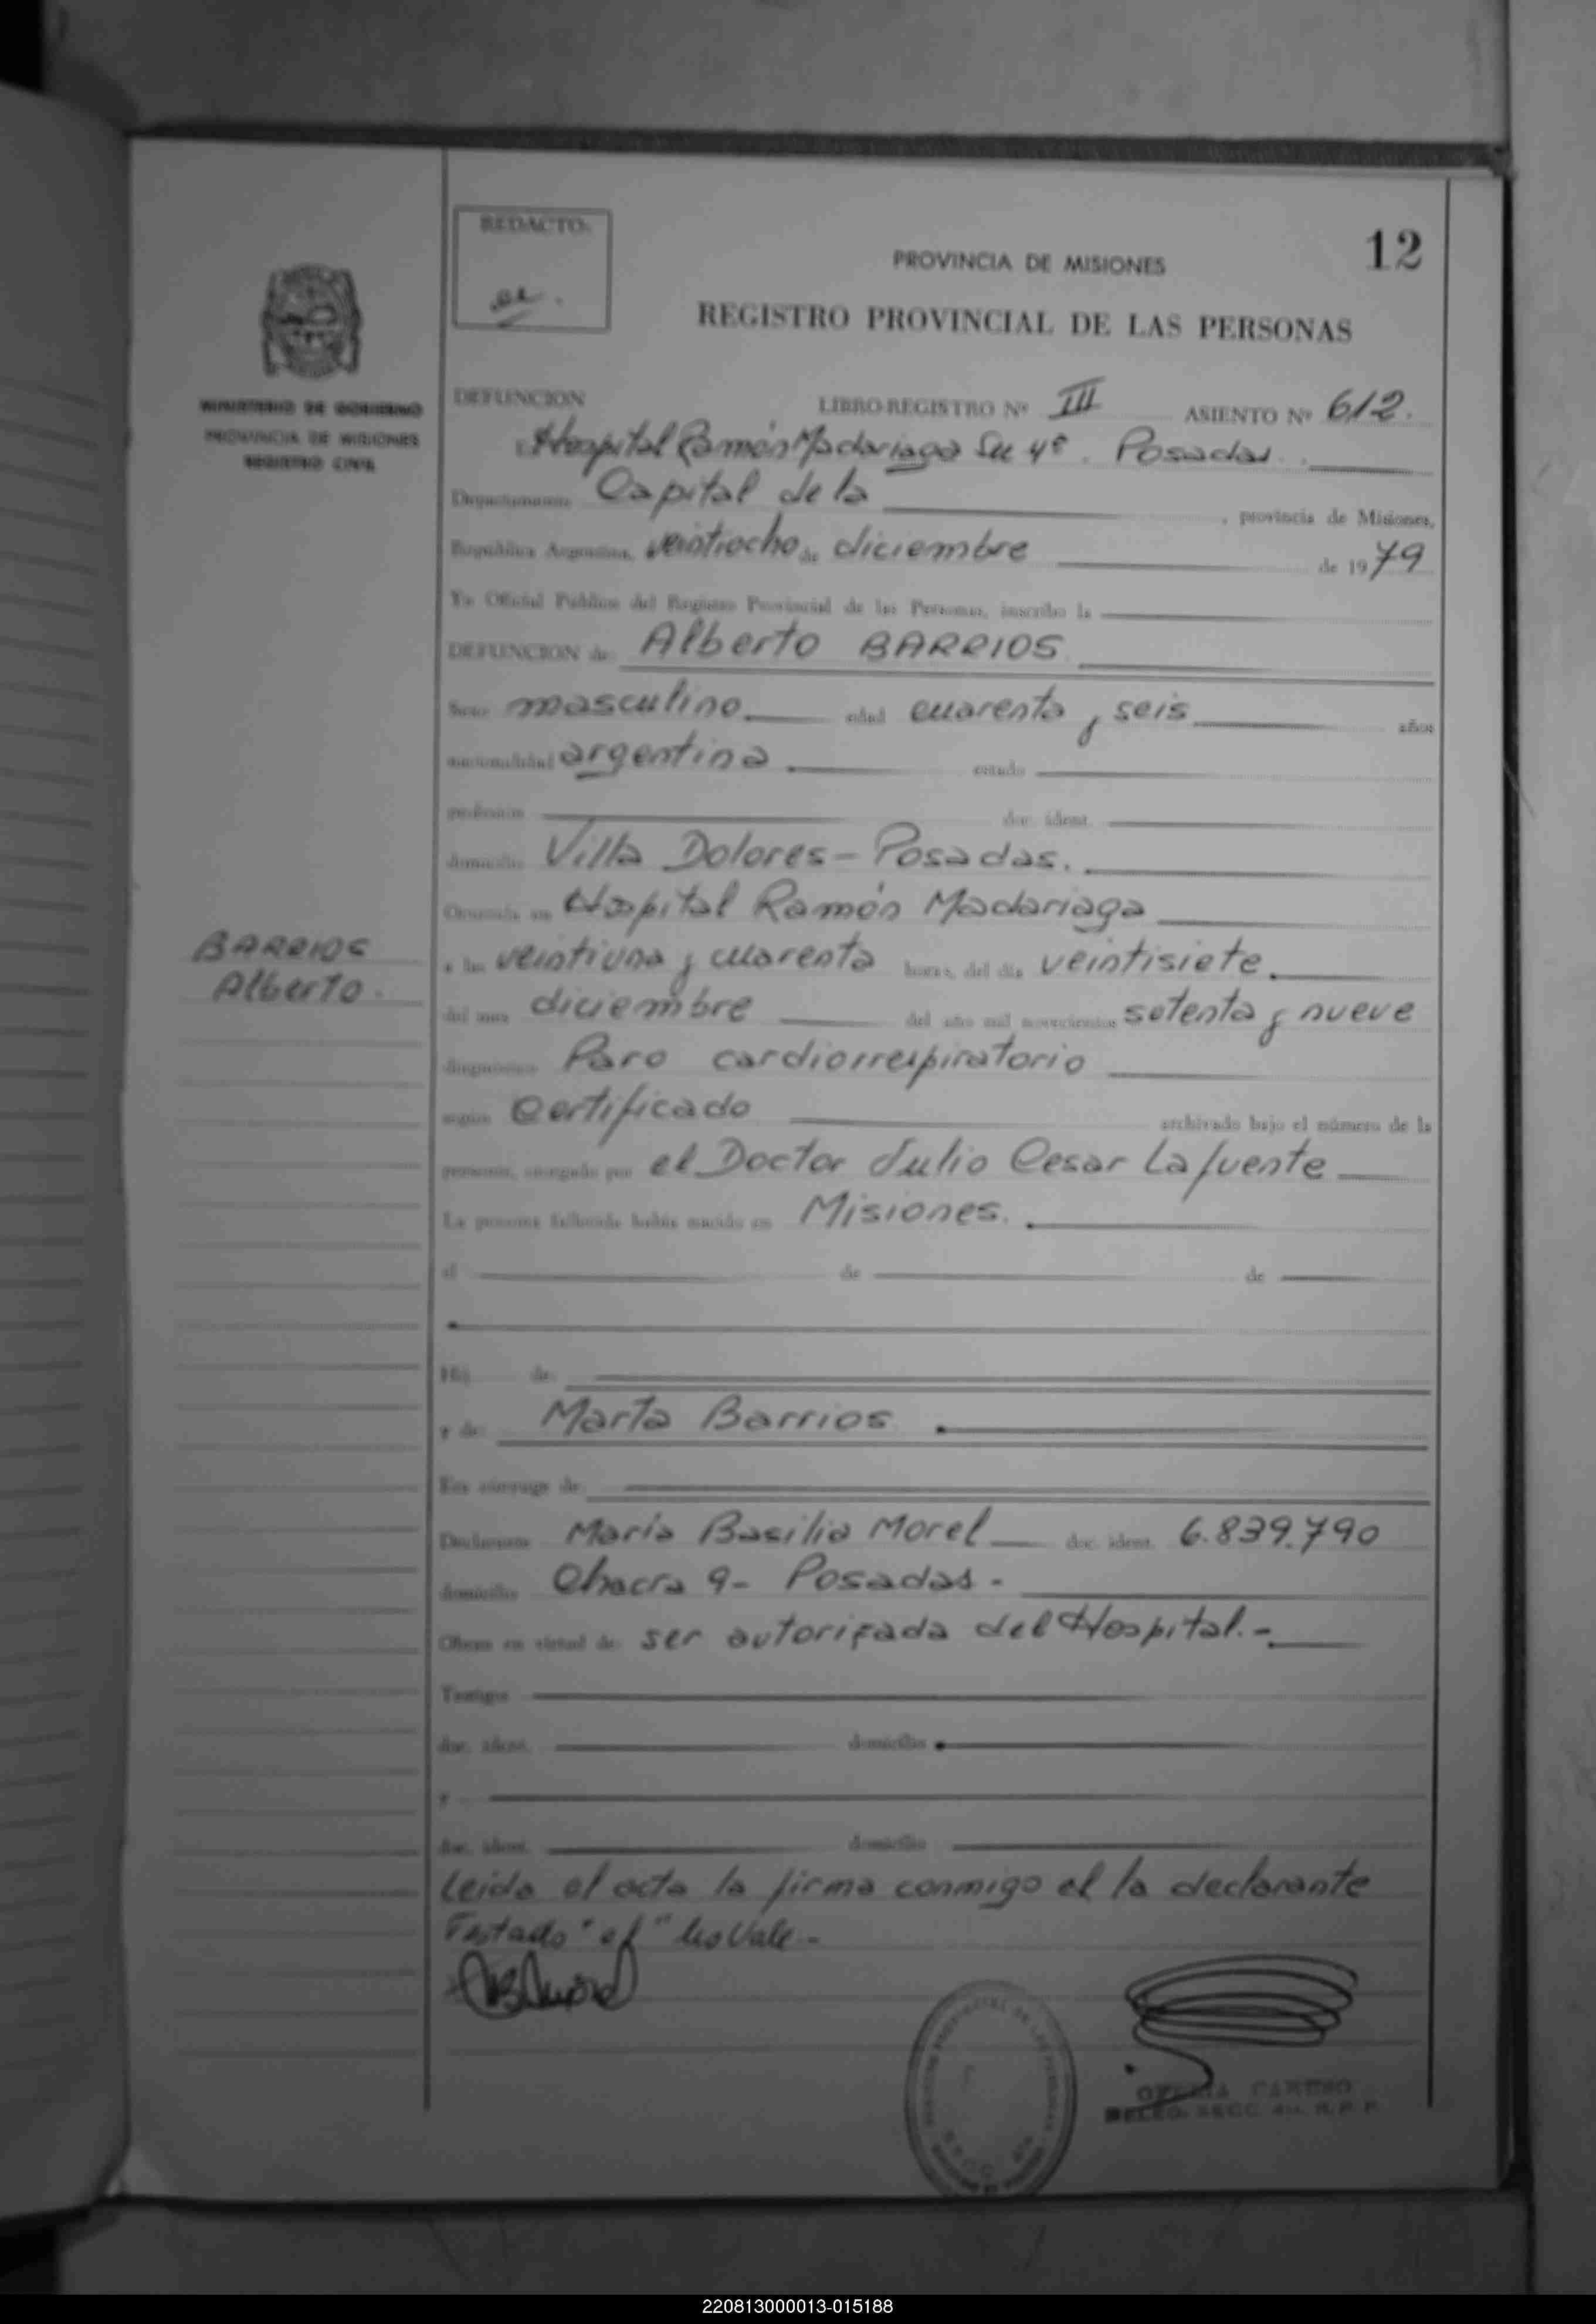 REDACTO:
12
PROVINCIA DE MISIONES
REGISTRO PROVINCIAL DE LAS PERSONAS
MINISTERIO DE GOBIERNO
PROVINCIA DE MISIONES
REGISTRO CIVIL
DEFUNCION LIBRO-REGISTRO Nº III ASIENTO Nº 612.
Hospital Ramón Madariaga 4º. Posadas.
Departamento Capital de la , provincia de Misiones,
República Argentina, veintiocho de diciembre de 1979
Yo Oficial Público del Registro Provincial de las Personas, inscribo la
DEFUNCION de Alberto BARRIOS
Sexo masculino edad cuarenta y seis años
nacionalidad argentina estado
profesión doc. ident.
domicilio Villa Dolores - Posadas.
Ocurrida en Hospital Ramón Madariaga
BARRIOS
Alberto.
a las veintiuna y cuarenta horas, del día veintisiete
del mes diciembre del año mil novecientos setenta y nueve
diagnóstico Paro cardiorrespiratorio
según Certificado archivado bajo el número de la
presente, otorgado por el Doctor Julio Cesar Lafuente
La persona fallecida había nacido en Misiones.
el de de
Hij de:
y de: Marta Barrios
Era cónyuge de:
Declarante María Basilia Morel doc. ident. 6.839.790
domicilio Chacra 9 - Posadas -
Obran en virtud de: ser autorizada del Hospital.-
Testigos
doc. ident. domicilio
y
doc. ident. domicilio
Leida el acta la firma conmigo el la declarante
Testado "el" No Vale -
SECC. 4ta. R.P.P.
220813000013-015188